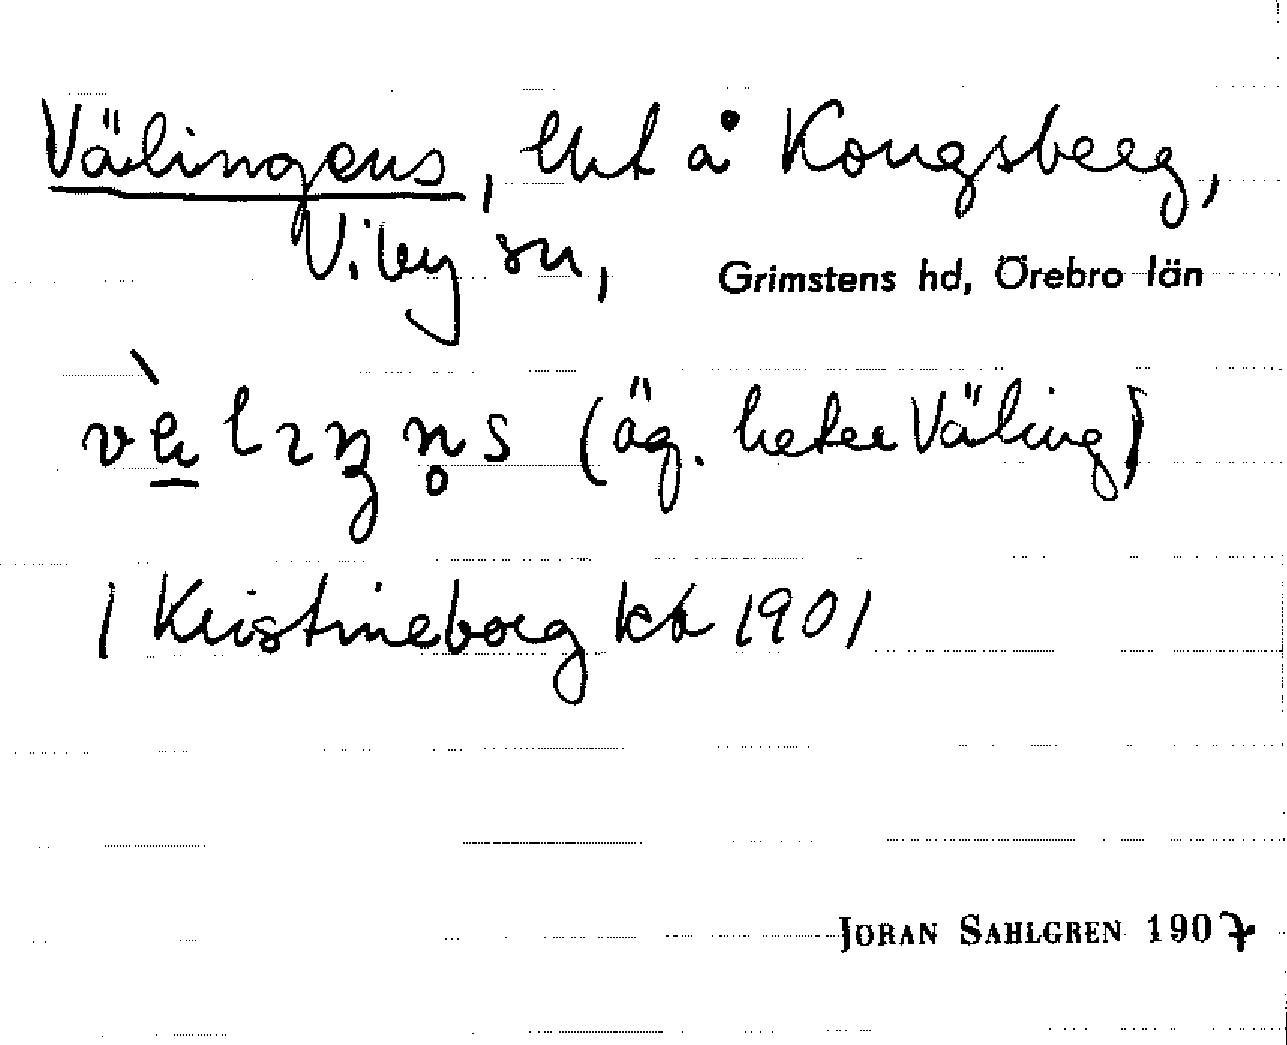 Välingens, lht å Kongsberg,
Viby sn,
Grimstens hd, Örebro län
(äg. heter Väling)
/ Kristineborg kb 1901
JÖRAN SAHLGREN 1907